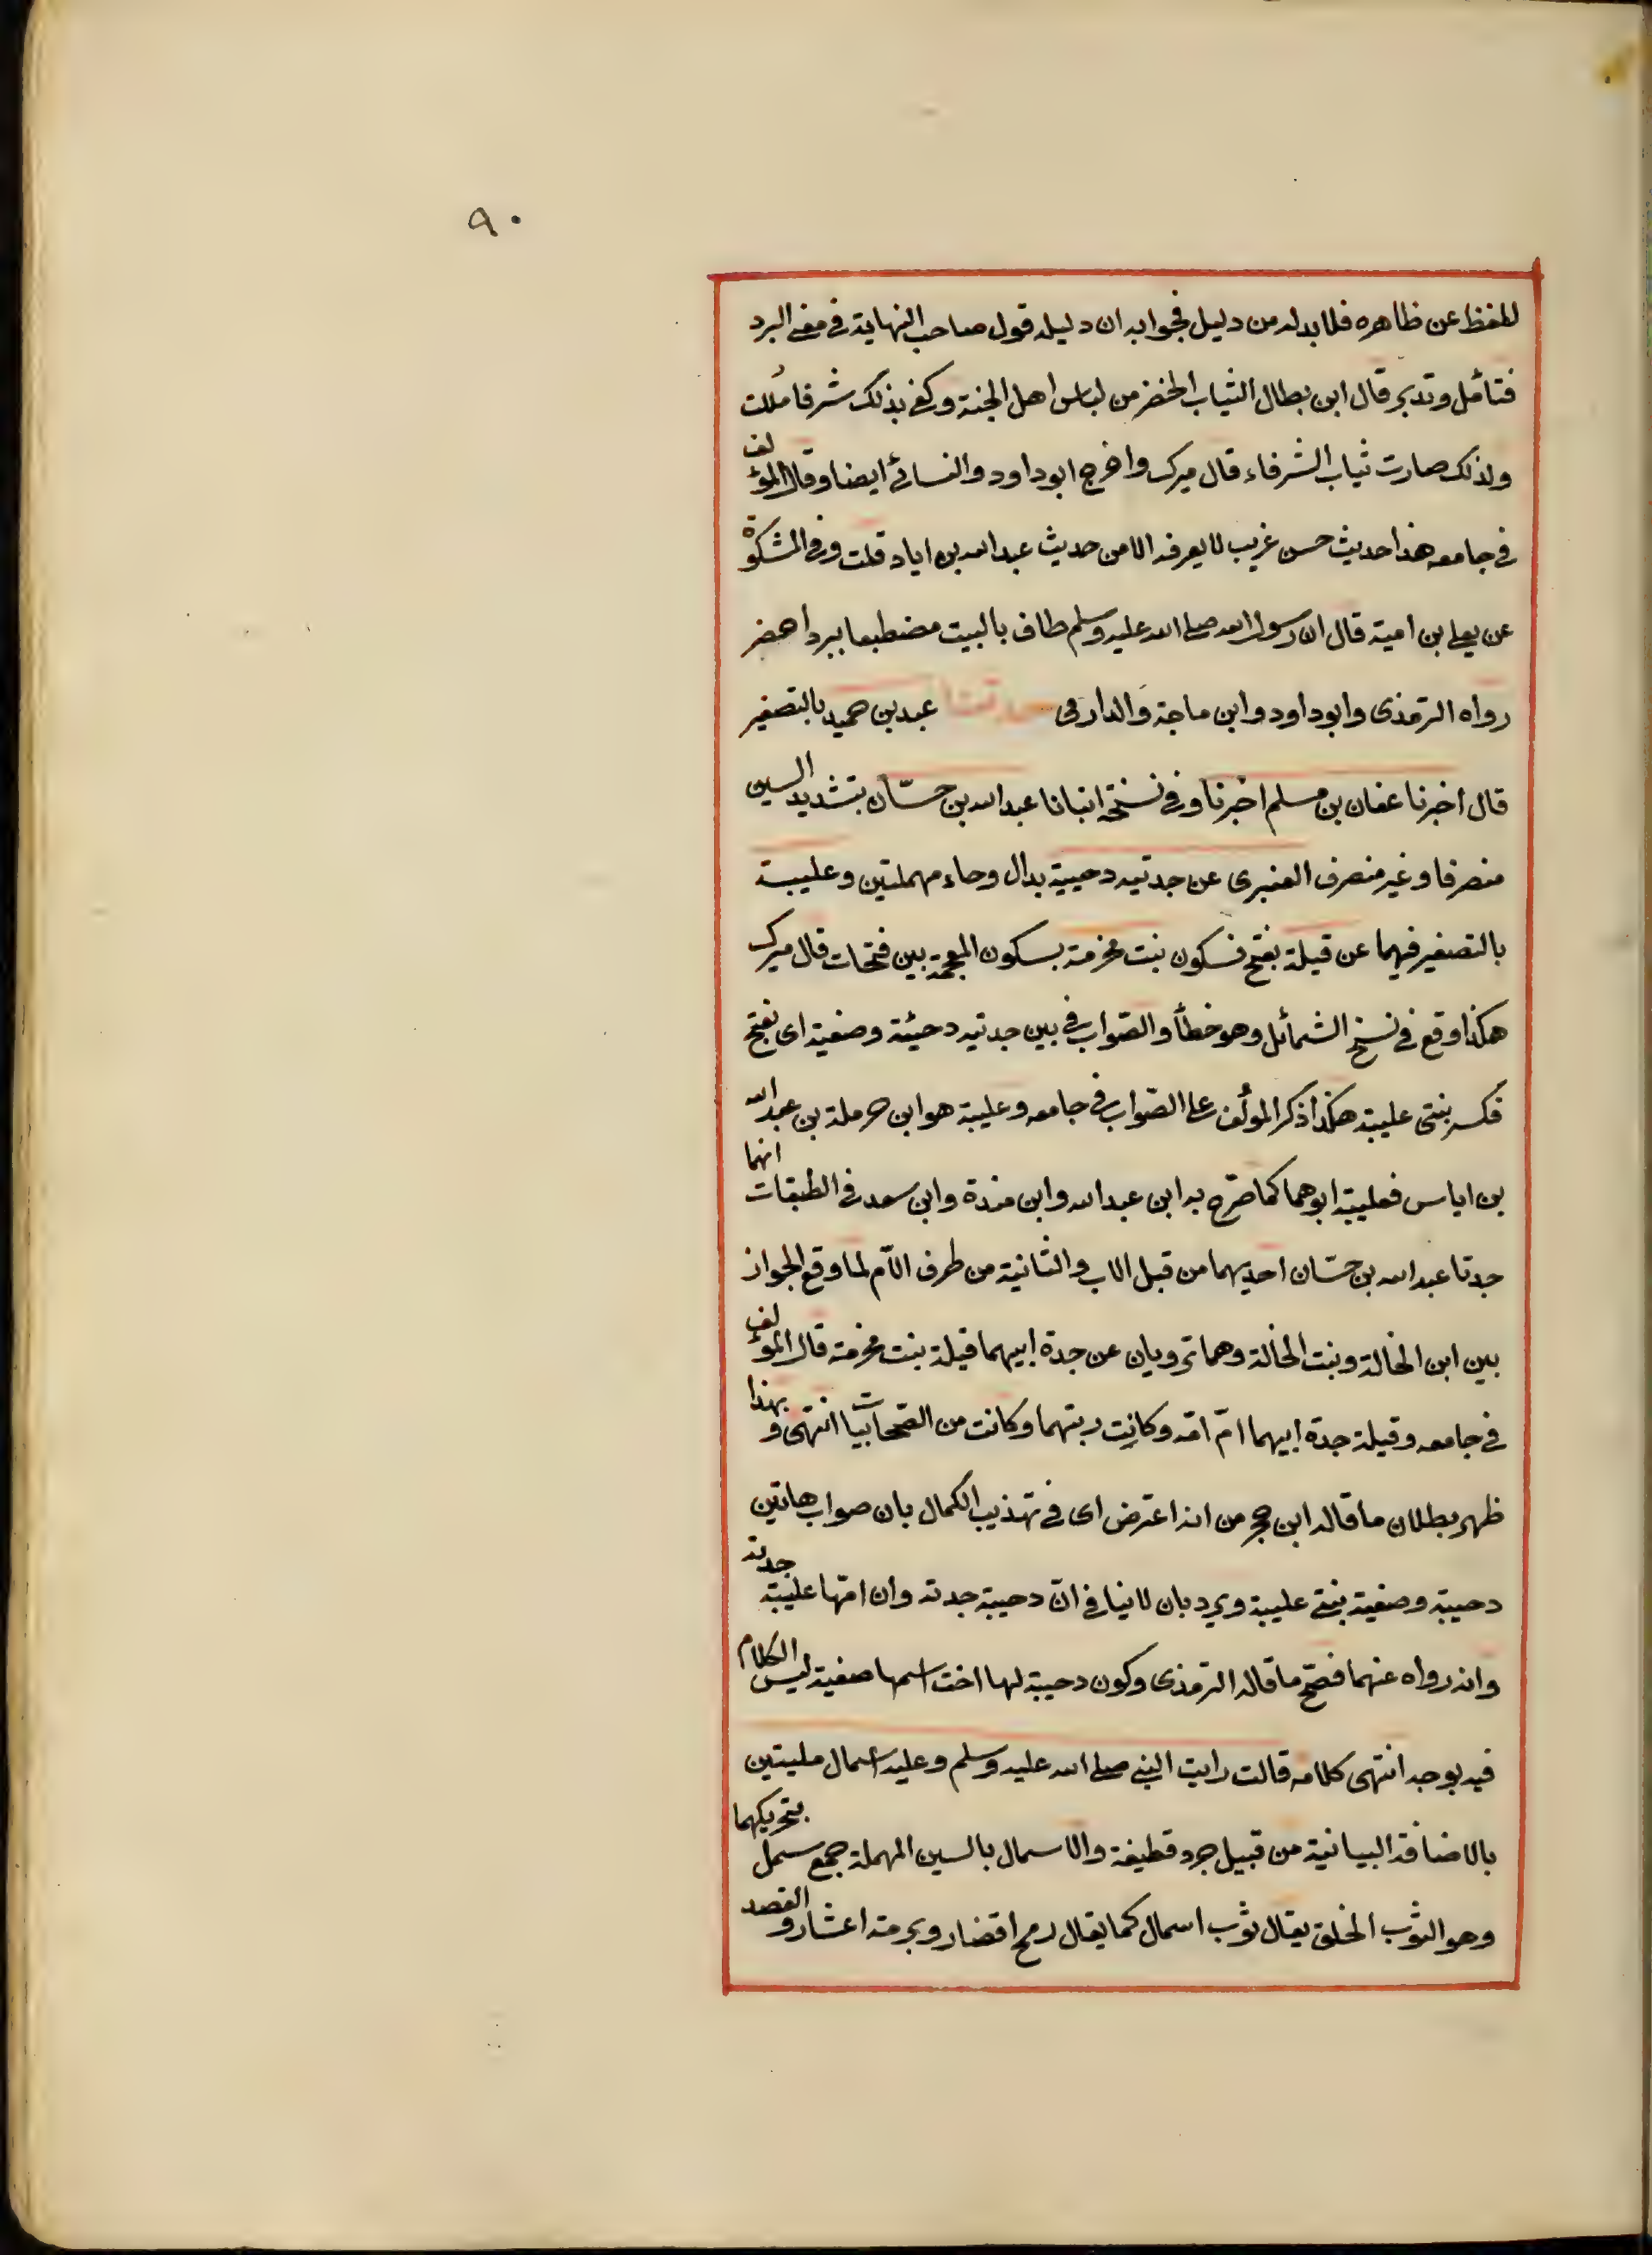 ٩٠
للفظ عن ظاهره فلا بد له من دليل فجوابه ان دليله قول صاحب النهاية في معنى البرد
فتأمل وتدبر قال ابن بطال الثياب الخضر من لباس اهل الجنة وكفى بذلك شرفا مُلت
ولذلك صارت ثياب الشرفاء قال ميرك واخرج ابو داود والنسائي ايضا وقال المؤلف
في جامعه هذا حديث حسن غريب لا يعرفه الا من حديث عبد الله بن اياد قلت وفي المشكوة
عن يعلى بن امية قال ان رسول الله صلى الله عليه وسلم طاف بالبيت مضطبعا ببرد اخضر
رواه الترمذي وابو داود وابن ماجة والدارمي حدثنا عبد بن حميد بالتصغير
قال اخبرنا عفان بن مسلم اخبرنا وفي نسخة انبانا عبد الله بن حسّان بتشديد السين
منصرفا وغير منصرف العنبري عن جدتيه دحيبة بدال وحاء مهملتين وعليبة
بالتصغير فيهما عن قيلة بفتح فسكون بنت مخرمة بسكون المعجمة بين فتحات قال ميرك
هكذا وقع في نسخ الشمائل وهو خطأ والصّواب في بين جدتيه دحيئة وصفية اى بفتح
فكسر بنتي عليبة هكذا ذكر المؤلف على الصّواب في جامعه وعليبة هو ابن حرملة بن عبد الله
بن اياس فعليبة ابوهما كما صرّح به ابن عبد الله وابن مندة وابن سعد في الطبقات انهما
جدتا عبد الله بن حسّان احديهما من قبل الاب والثانية من طرف الاّم لما وقع الجواز
بين ابن الخالة وبنت الخالة وهما ترويان عن جدة ابيهما قيلة بنت مخرمة قال المؤلف
في جامعه وقيلة جدة ابيهما امّ امّه وكانت ربتهما وكانت من الصّحابيات انتهى وبهذا
ظهر بطلان ما قاله ابن حجر من انه اعترض اى في تهذيب الكمال بان صواب هاتين
دحيبة وصفية بنتي عليبة ويرد بان لا ينافي انّ دحيبة جدته وان امّها عليبة جدته
وانه رواه عنهما فصحّ ما قاله الترمذي وكون دحيبة لها اخت اسمها صفية ليس الكلام
فيه بوجه انتهى كلامه قالت رايت النبي صلى الله عليه وسلم وعليه اسمال مليتين
بالاضافة البيانية من قبيل جرد قطيفة والاسمال بالسين المهملة جمع سمل بتحريكهما
وهو الثوب الخلق يقال ثوب اسمال كما يقال رمح اقضار وبرمة اعشار والقصد